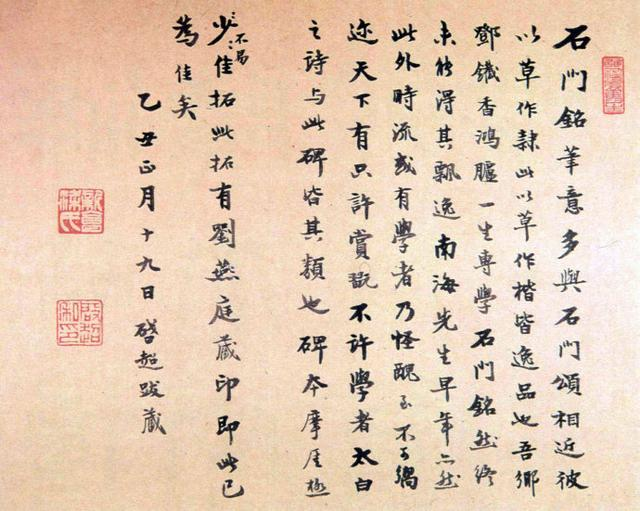 石門銘筆意多與石門頌相近彼
以草作隸此以草作楷皆逸品也吾鄉
鄧鐵香鴻臚一生專學石門銘然終
未能得其飄逸南海先生早年亦然
此外時流或有學者乃怪醜至不可
迩天下有只許賞翫不許學者太白
之詩與此碑皆其類也碑本摩崖極
少佳拓此拓有劉燕庭藏印即此已
不易
為佳矣
乙丑正月十九日啓超跋藏
新會梁氏
啟超私印